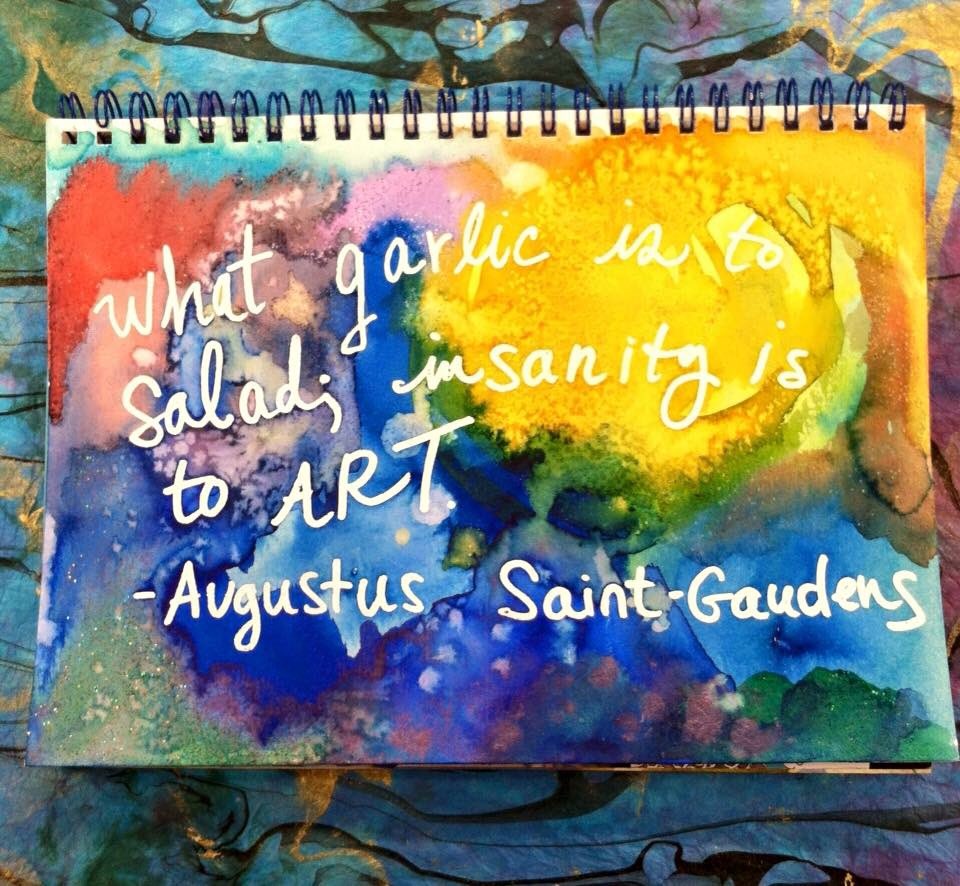 What garlic is to
Salad; insanity is
to ART.
-Augustus Saint-Gaudens